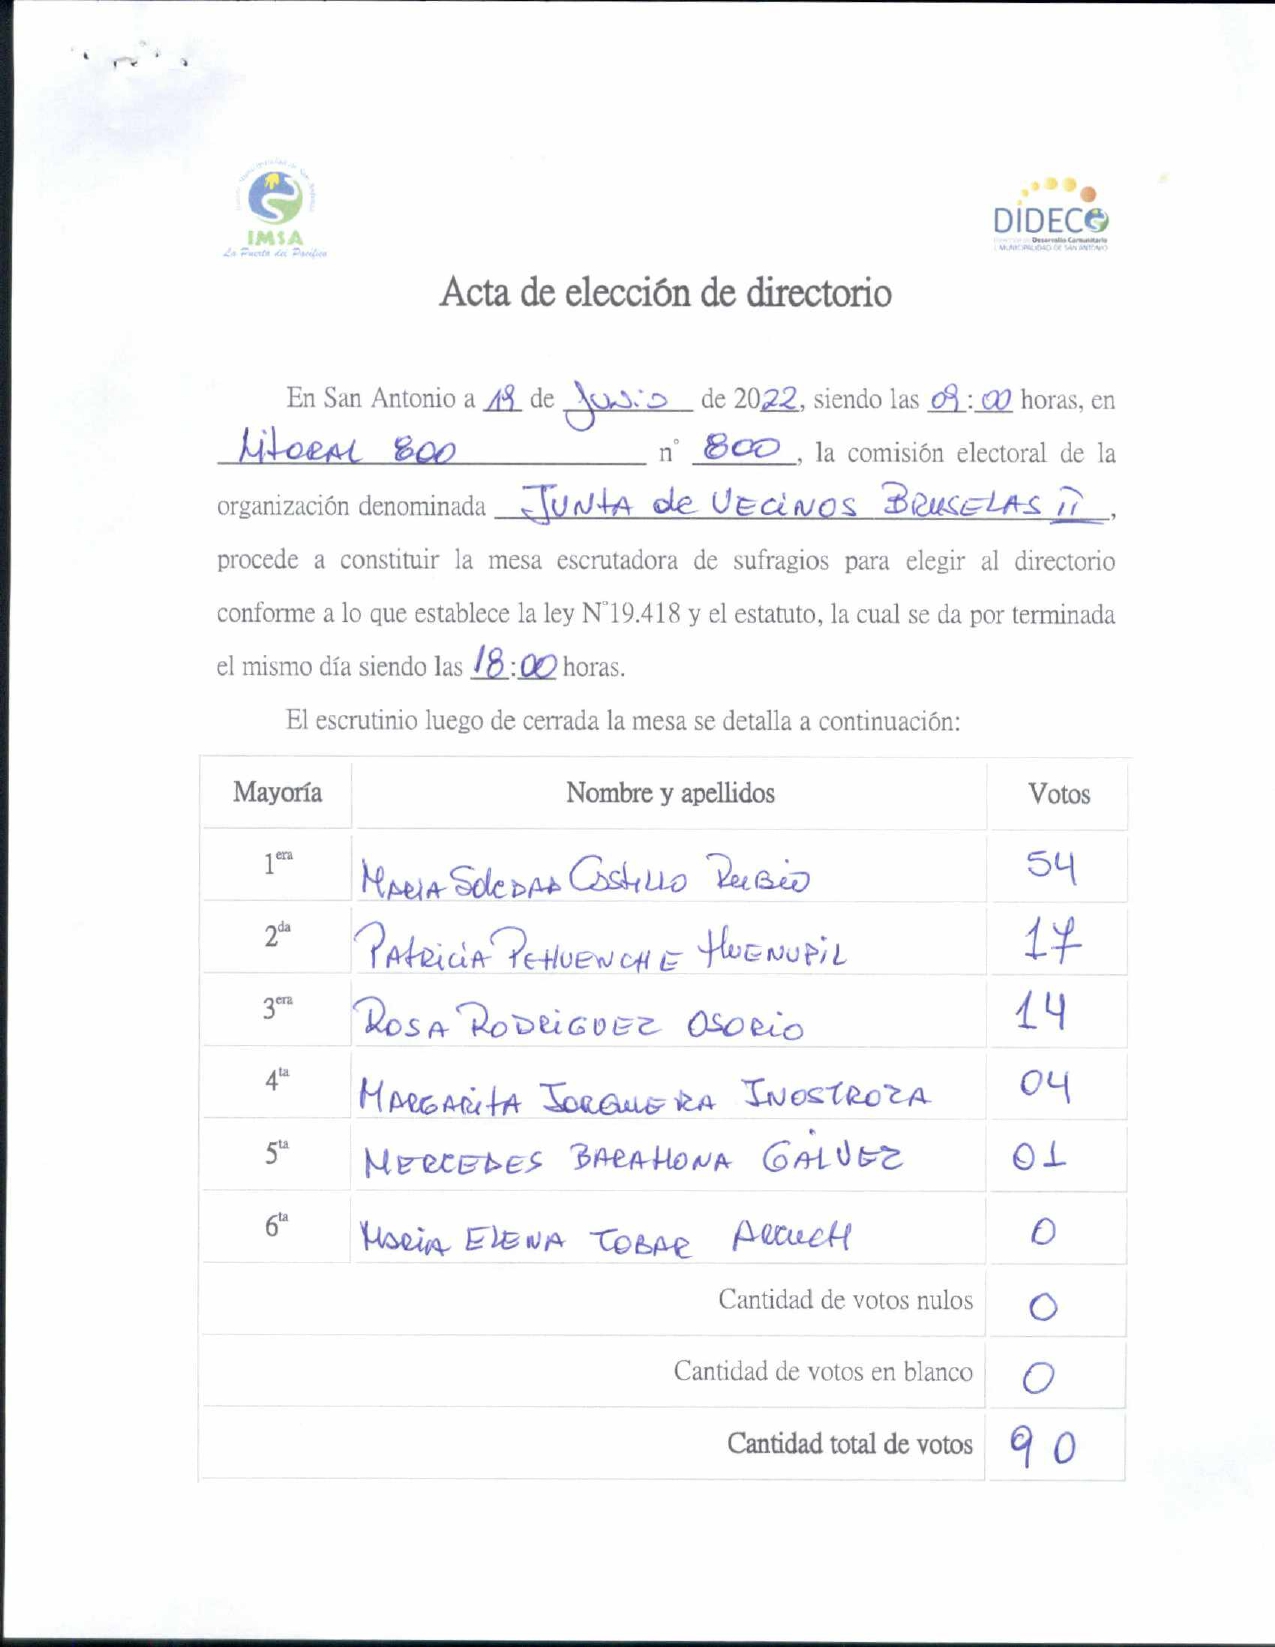 IMSA
La Puerta del Pacífico
DIDECO
Desarrollo Comunitario
I. MUNICIPALIDAD DE SAN ANTONIO
Acta de elección de directorio
En San Antonio a 19 de Junio de 2022, siendo las 09:00 horas, en
LitoRAL 800 n° 800, la comisión electoral de la
organización denominada JUNtA de VECiNOS BRUSELAS II,
procede a constituir la mesa escrutadora de sufragios para elegir al directorio
conforme a lo que establece la ley N°19.418 y el estatuto, la cual se da por terminada
el mismo día siendo las 18:00 horas.
El escrutinio luego de cerrada la mesa se detalla a continuación:
Mayoría Nombre y apellidos Votos
1era MARIA SOLEDAD CASTILLO RUBIO 54
2da PATRICIA PEHUENCHE HUENUPIL 17
3era ROSA RODRIGUEZ OSORIO 14
4ta MARGARITA JORQUERA INOSTROZA 04
5ta MERCEDES BARAHONA GALVEZ 01
6ta MARIA ELENA TOBAR 0
Cantidad de votos nulos 0
Cantidad de votos en blanco 0
Cantidad total de votos 90